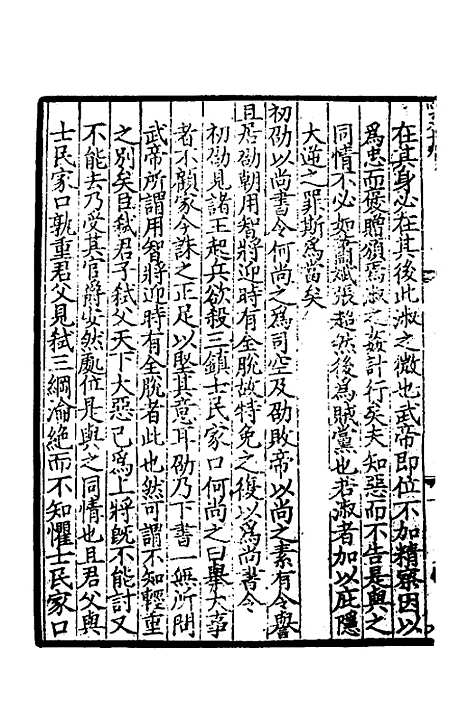 在其身必在其後此淑之微也武帝即位不加精察因以
爲忠而褒贈頒焉淑之姦計行矣夫知惡而不告是與之
同情不必如蕭斌張超然後爲賊黨也若淑者加以庇隱
大逆之罪斯爲當矣
初劭以尚書令何尚之爲司空及劭敗帝以尚之素有令譽
且居劭朝用智將迎時有全脫故特免之復以爲尚書令
初劭見諸王起兵欲殺三鎮士民家口何尚之曰舉大事
者不顧家今誅之正足以堅其意耳劭乃下書一無所問
武帝所謂用智將迎時有全脫者此也然可謂不知輕重
之別矣臣弒君子弒父天下大惡已爲上將既不能討又
不能去乃受其官爵安然處位是與之同情也且君父與
士民家口孰重君父見弒三綱淪絕而不知懼士民家口